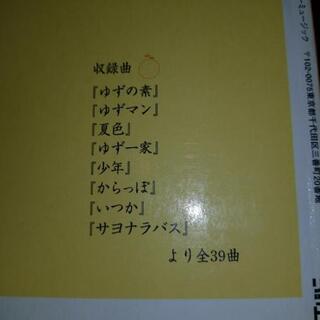 収録曲
『ゆずの素』
『ゆずマン』
『夏色』
『ゆず一家』
『少年』
『からっぽ』
『いつか』
『サヨナラバス』
より全39曲
ーミュージック
〒102-0075東京都千代田区三番町20番